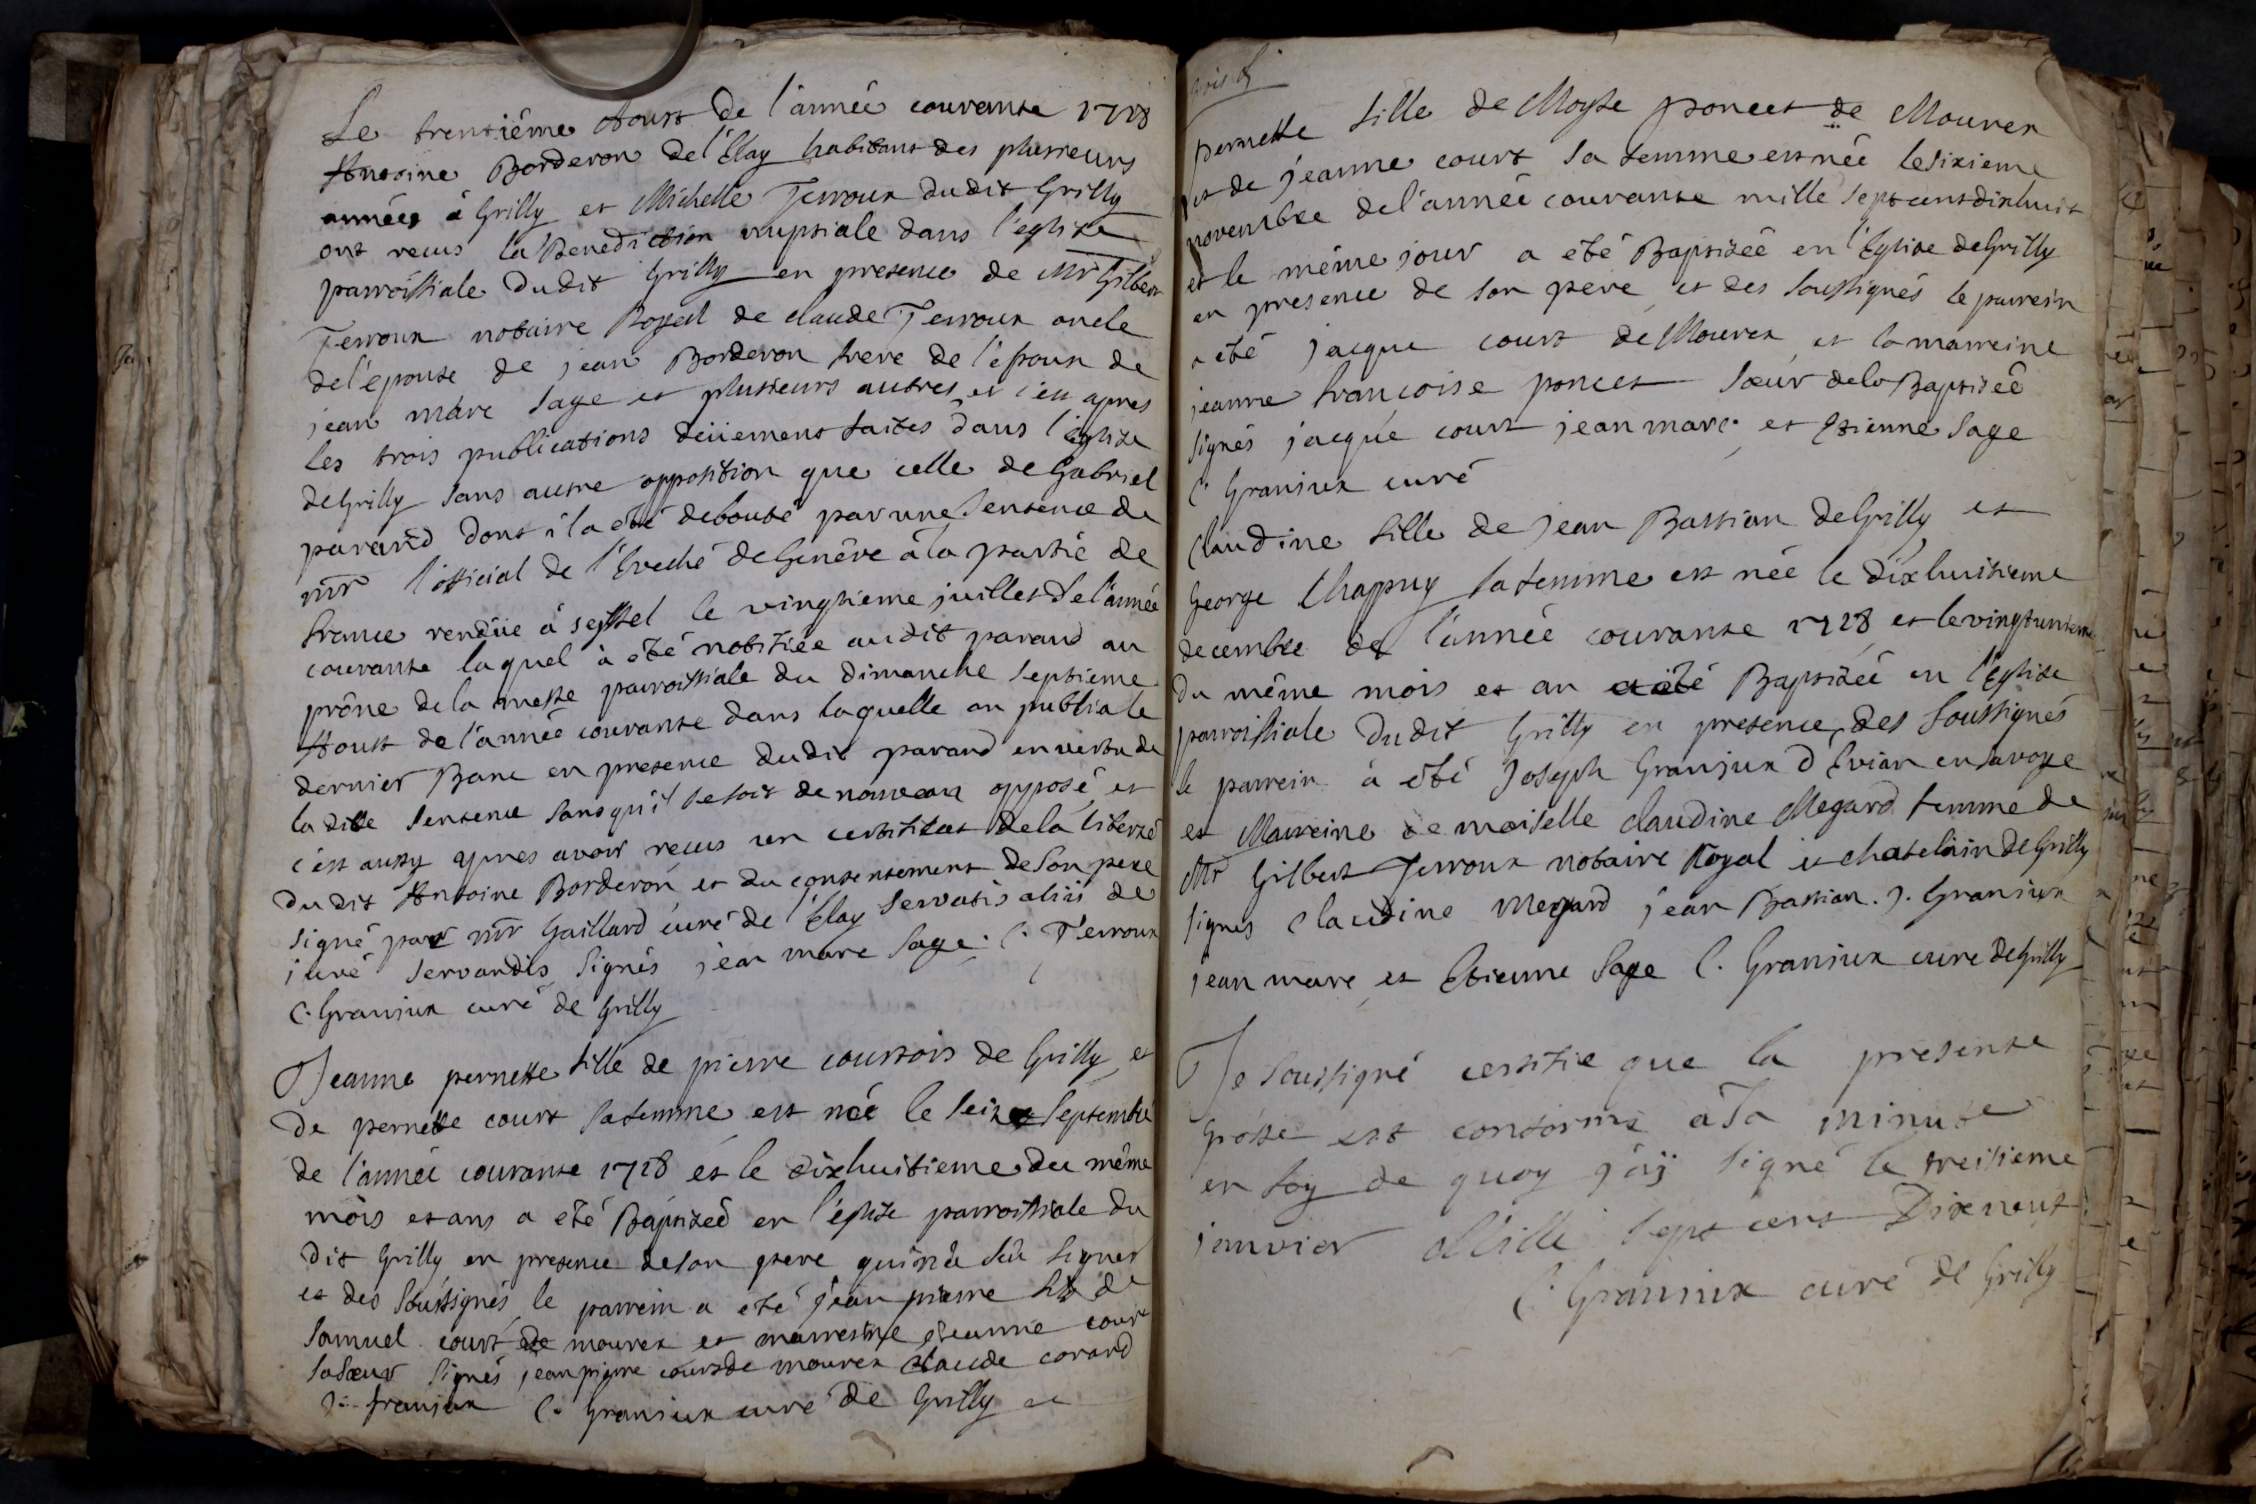 Le trentiéme Aoust de l'année courante 1718
Antoine Borderon de l'Elay habitant des plusieurs
années à Grilly et Michelle Terroux dudit Grilly
ont recus la Benediction nuptiale dans l'eglize
parroissiale dudit Grilly en presence de Mr Gilbert
Terroux notaire Royal de claude Terroux oncle
de l'epouse de jean Borderon frere de l'epoux de
jean marc Sage et plusieurs autres et c'est apres
les trois publications deüement faites dans l'eglize
de Grilly sans autre opposition que celle de Gabriel
parand dont il a eté debouté par une sentence de
mr l'official de l'Eveché de Genéve à la partie de
france rendüe à seyssel le vingtieme juillet de l'année
courante laquel à été notifiée audit parand au
prône de la messe parroissiale du dimanche septieme
Aoust de l'année courante dans laquelle on publia le
dernier Banc en presence dudit parand en vertu de
la dite sentence sans qu'il se soit de nouveau opposé et
c'est aussy apres avoir recus un certificat de la liberté
dudit Antoine Borderon et du consentement de son pere
signé par mr Gaillard curé de l'Elay servatis aliis de
juré servandis signés jean marc Sage. C. Terroux
C. Granjux curé de Grilly
Jeanne pernette fille de pierre courtois de Grilly et
de pernette court sa femme est née le seize septembre
de l'année courante 1718 et le dixhuitieme du même
mois et ans a eté Baptizeé en l'églize parroissiale du
dit Grilly en presence de son pere qui n'a sçu signer
et des soussignés le parrein a eté jean pierre fils de
samuel court de mourex et marreine jeanne court
sa sœur signés jean pierre court de mourex claude corand
J. franjux C. Granjux curé de Grilly
pernette fille de Moyse poncet de Mourex
et de jeanne court sa femme est née le sixieme
novembre de l'année courante mille sept cent dixhuit
et le même jour a eté Baptizeé en l'Eglize de Grilly
en presence de son pere et des soussignés le parrein
a eté jacque court de Mourex et la marreine
jeanne françoise poncet sœur de la Baptizeé
signés jacque court jean marc et Etienne Sage
C. Granjux curé
Claudine fille de jean Bastian de Grilly et
George Chappuy sa femme est née le dixhuitieme
decembre de l'année courante 1718 et le vingt unieme
du même mois et an a eté Baptizeé en l'Eglize
parroissiale dudit Grilly en presence des soussignés
le parrein à été Joseph Granjux d'Evian en savoye
et Marreine demoiselle claudine Megard femme de
Mr Gilbert Terroux notaire Royal et chatelain de Grilly
signés claudine megard jean Bastian. J. Granjux
jean marc et Etienne Sage C. Granjux curé de Grilly
Je soussigné certifie que la presente
grosse est conforme à la minute
en foy de quoy j'aÿ signé le treisieme
janvier Mille sept cent Dixneuf
C. Granjux curé de Grilly